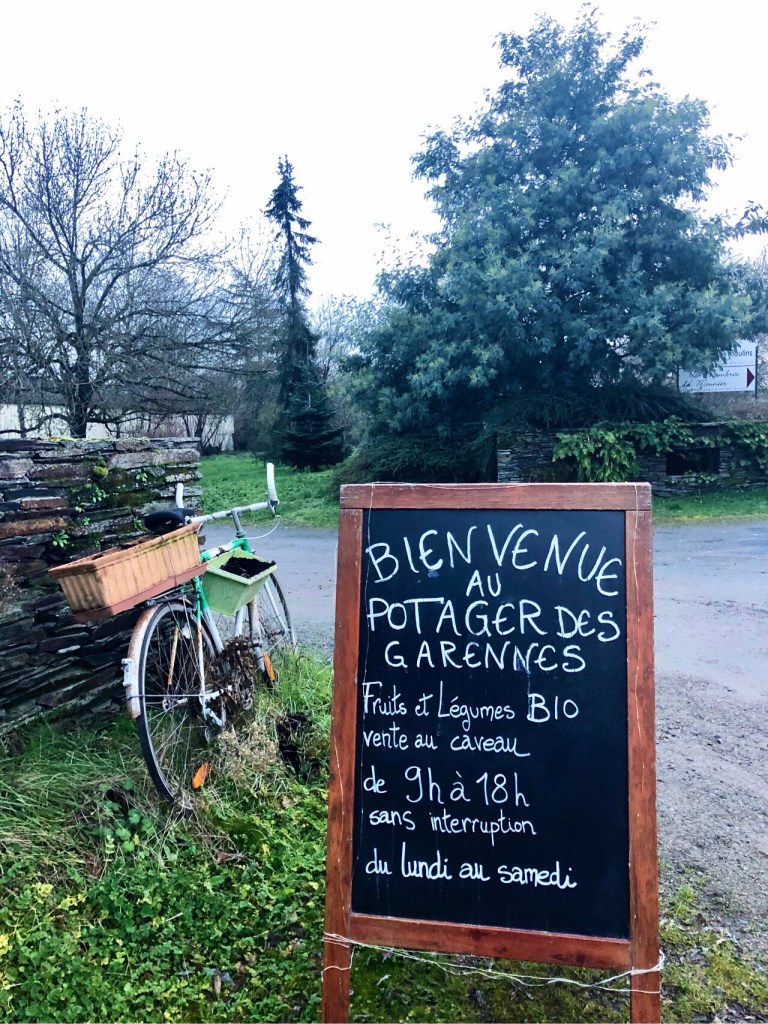 oulins
BIENVENUE
AU
POTAGER DES
GARENNES
Fruits et Légumes BIO
vente au caveau
de 9h à 18h
sans interruption
du lundi au samedi